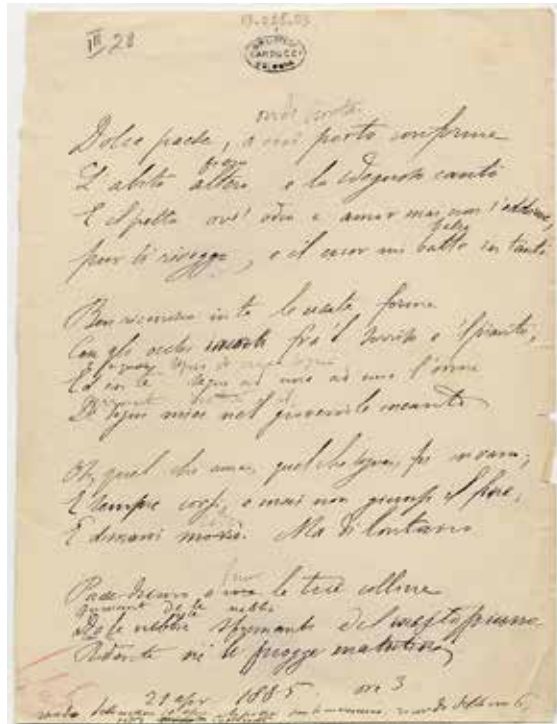 III, 28
CARDUCCI
onde porta
Dolce paese, a cui porto conforme
fiero
L'abito altero e lo sdegnoso canto
E il petto ov' odio e amor mai non s'addorme,
balza
pur ti riveggo, e il cuor mi batte in tanto
Ben riconosco in te le usate forme
Con gli occhi incerti fra 'l sorriso e 'l pianto,
ad uno ad uno l'orme
De' sogni miei nel giovenile incanto
Oh, quel che amai, quel che sognai, fu in vano;
E sempre corsi, e mai non giunsi il fine,
E dimani morrò. Ma di lontano
Pace dicono le tue colline
sfumanti de le nebbie
sfumanti del mesto piano
Ridente ne le piogge mattutine
21 apr 1885 ore 3